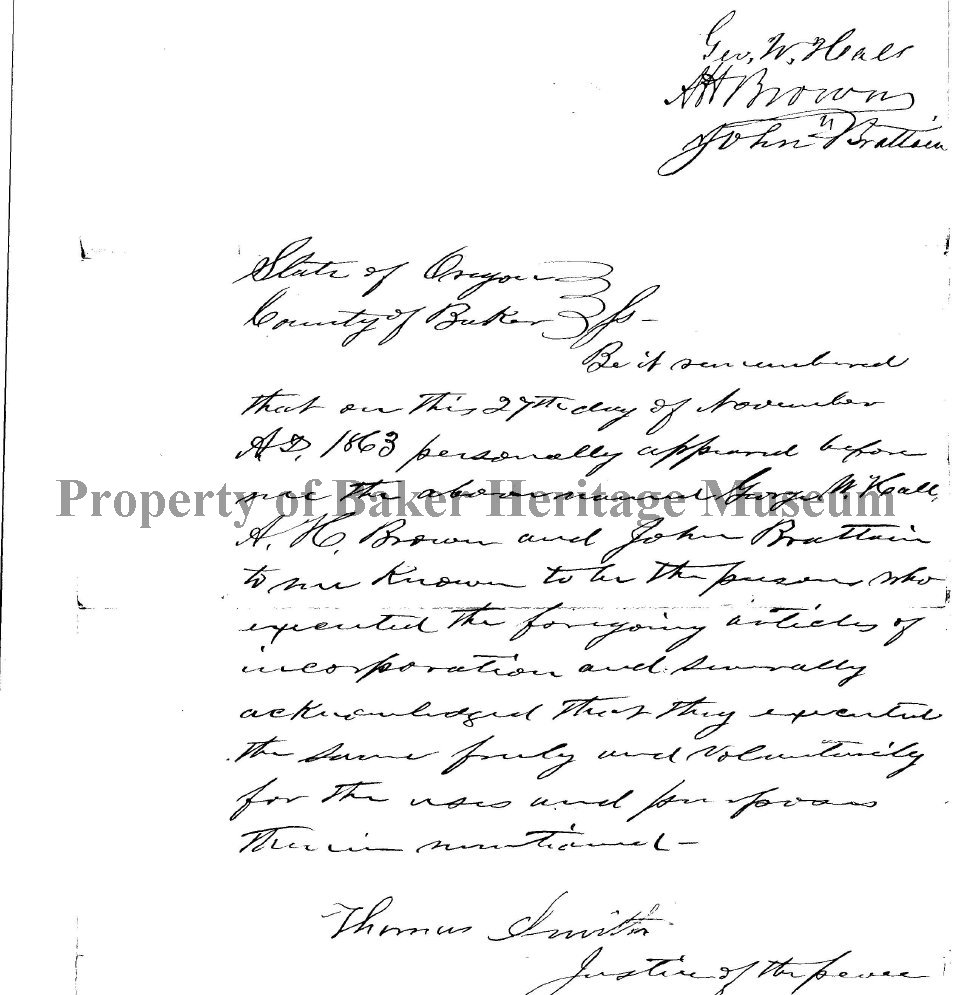 Geo. W. Hall
A H Brown
John Brattain
State of Oregon
County of Baker } ss -
Be it remembered
that on this 27th day of November
A.D. 1863 personally appeared before
me the above named George W. Hall,
Property of Baker Heritage Museum
A. H. Brown and John Brattain
to me Known to be the persons who
executed the foregoing articles of
incorporation and severally
acknowledged that they executed
the same freely and voluntarily
for the uses and purposes
therein mentioned -
Thomas Smith
Justice of the peace